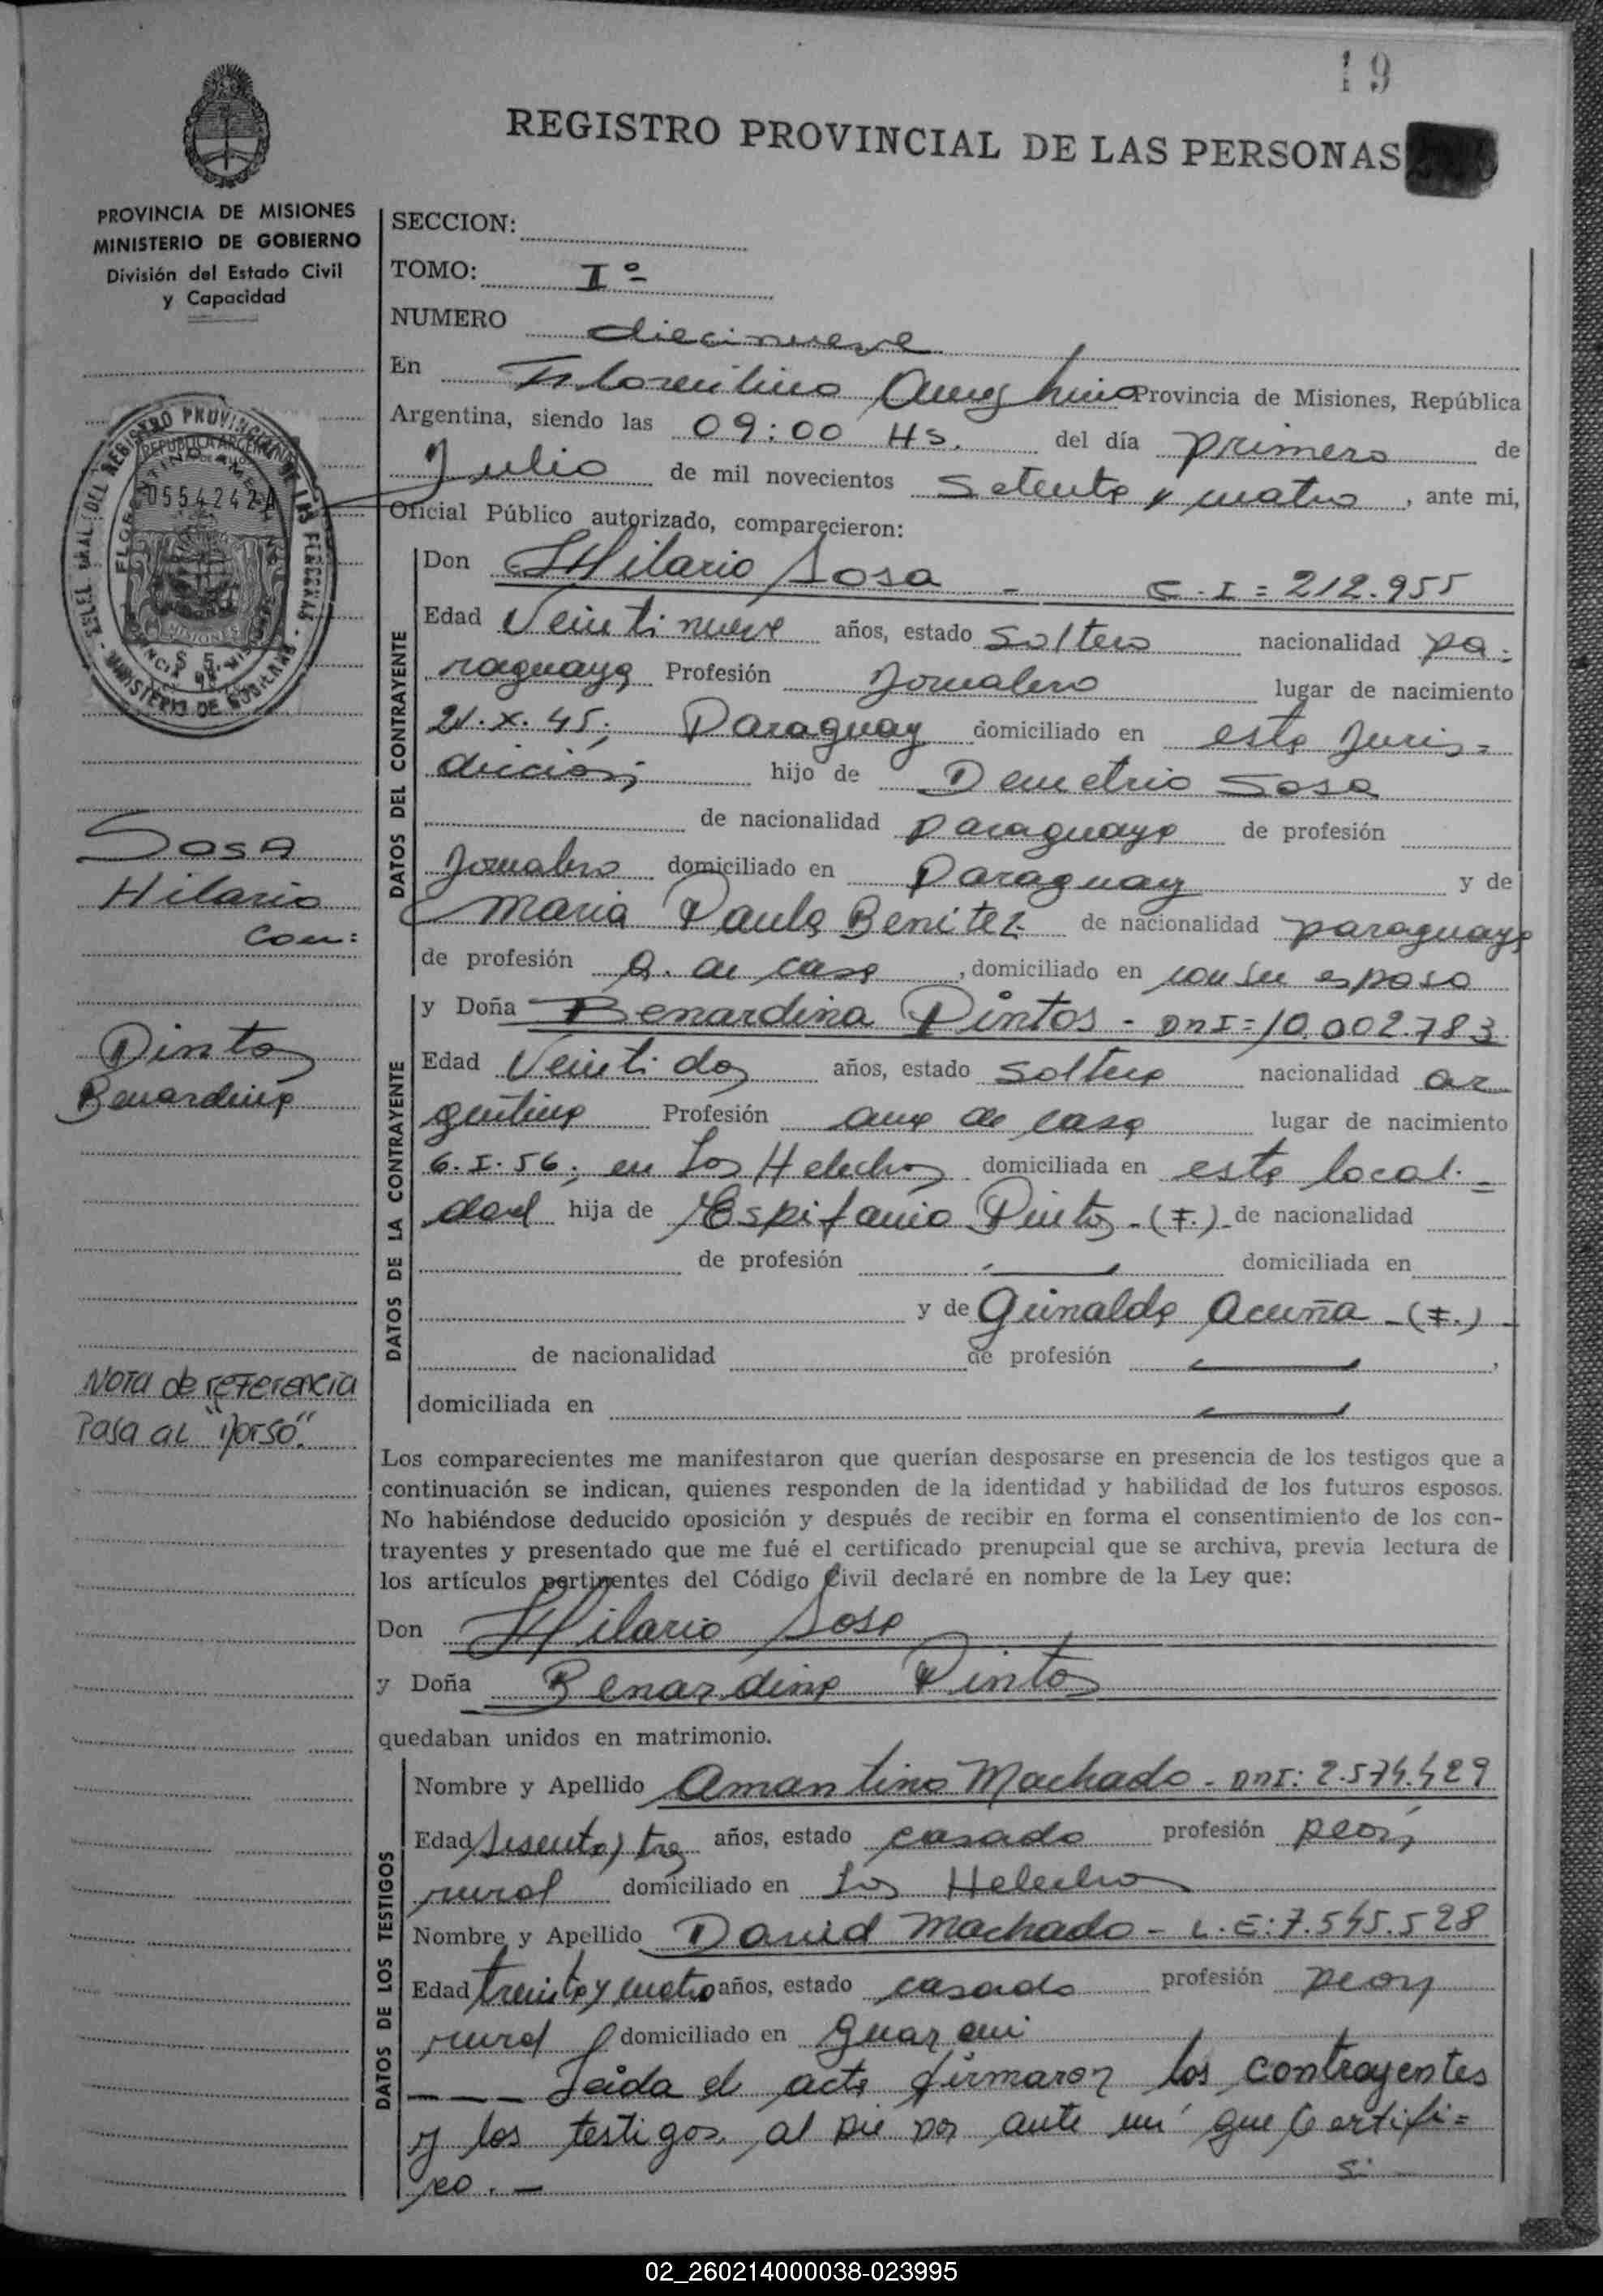 19
REGISTRO PROVINCIAL DE LAS PERSONAS
PROVINCIA DE MISIONES
MINISTERIO DE GOBIERNO
División del Estado Civil
y Capacidad
SECCION:
TOMO: Iº
NUMERO diecinueve
En Florentino Ameghino Provincia de Misiones, República
Argentina, siendo las 09:00 Hs. del día primero de
Julio de mil novecientos Setenta y cuatro, ante mi,
Oficial Público autorizado, comparecieron:
0554242
DATOS DEL CONTRAYENTE
Don Hilario Sosa - C.I = 212.955
Edad Veintinueve años, estado Soltero nacionalidad pa-
raguaya Profesión Jornalero lugar de nacimiento
21.X.45; Paraguay domiciliado en esta Juris=
dicción; hijo de Demetrio Sosa
de nacionalidad paraguaya de profesión
Jornalero domiciliado en Paraguay y de
Maria Paula Benitez de nacionalidad paraguaya
de profesión A. de casa, domiciliado en con su esposo
Sosa
Hilario
con:
Pintos
Benardina
Nota de referencia
Pasa al "Dorso".
DATOS DE LA CONTRAYENTE
y Doña Benardina Pintos - DNI=10.002.783
Edad Veintidos años, estado Soltera nacionalidad ar
gentina Profesión ama de casa lugar de nacimiento
6.I.56; en Los Helechos domiciliada en esta local=
dad hija de Espifanio Pintos -(F.)- de nacionalidad
de profesión domiciliada en
y de Grinalda Acuña -(F.)-
de nacionalidad de profesión ,
domiciliada en
Los comparecientes me manifestaron que querían desposarse en presencia de los testigos que a
continuación se indican, quienes responden de la identidad y habilidad de los futuros esposos.
No habiéndose deducido oposición y después de recibir en forma el consentimiento de los con-
trayentes y presentado que me fué el certificado prenupcial que se archiva, previa lectura de
los artículos pertinentes del Código Civil declaré en nombre de la Ley que:
Don Hilario Sosa
y Doña Benardina Pintos
quedaban unidos en matrimonio.
DATOS DE LOS TESTIGOS
Nombre y Apellido Amantino Machado - DNI: 2.574.429
Edad Sesenta y tres años, estado casado profesión peón
rural domiciliado en Los Helechos
Nombre y Apellido David Machado - L.E: 7.545.528
Edad treinta y cuatro años, estado casado profesión peon
rural domiciliado en Guarani
--- Leida el acta firmaron los contrayentes
y los testigos al pie por ante mí que Certifi=
co. -
02_260214000038-023995